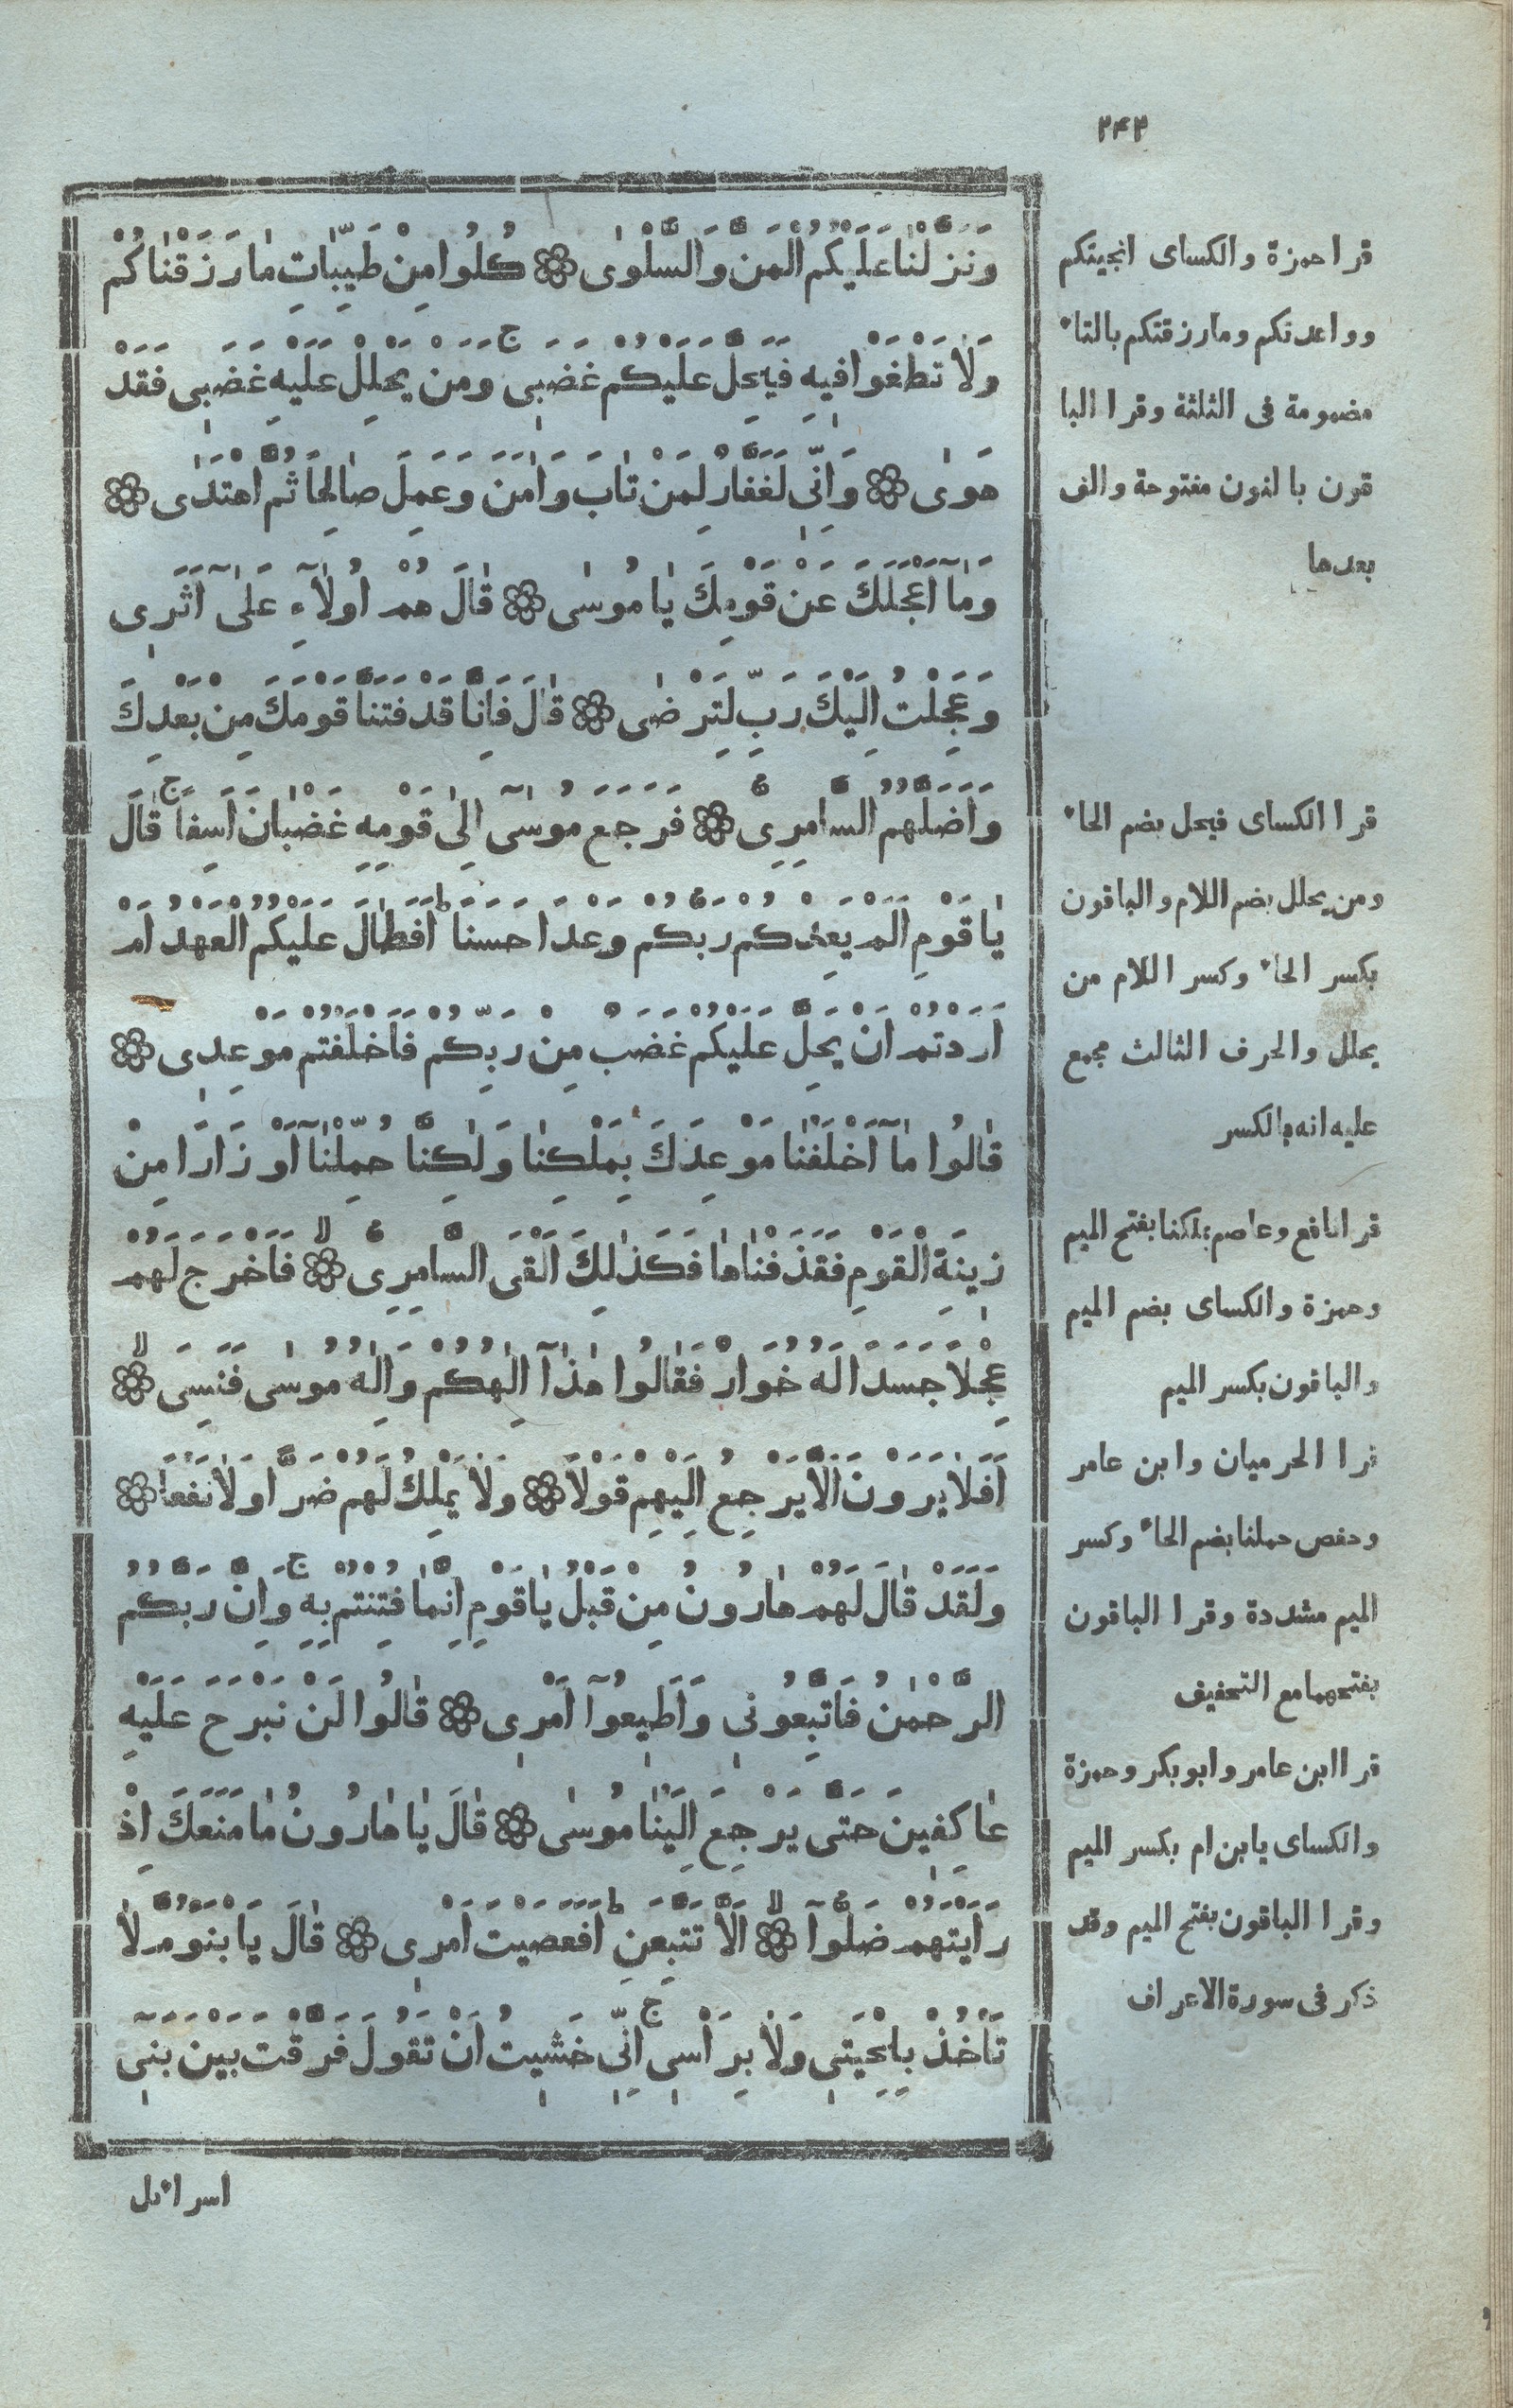 ٢٤٢
وَنَزَّلْنٰا عَلَيْكُمُ الْمَنَّ وَالسَّلْوٰى ۝ كُلُوا مِنْ طَيِّبٰاتِ مٰا رَزَقْنٰاكُمْ
وَلٰا تَطْغَوْا فِيهِ فَيَحِلَّ عَلَيْكُمْ غَضَبِى ج وَمَنْ يَحْلِلْ عَلَيْهِ غَضَبِى فَقَدْ
هَوٰى ۝ وَاِنِّى لَغَفّٰارٌ لِمَنْ تٰابَ وَاٰمَنَ وَعَمِلَ صٰالِحًا ثُمَّ اهْتَدٰى ۝
وَمٰٓا اَعْجَلَكَ عَنْ قَوْمِكَ يٰا مُوسٰى ۝ قٰالَ هُمْ اُولٰٓاءِ عَلٰٓى اَثَرِى
وَعَجِلْتُ اِلَيْكَ رَبِّ لِتَرْضٰى ۝ قٰالَ فَاِنّٰا قَدْ فَتَنّٰا قَوْمَكَ مِنْ بَعْدِكَ
وَاَضَلَّهُمُ السّٰامِرِىُّ ۝ فَرَجَعَ مُوسٰٓى اِلٰى قَوْمِهِ غَضْبٰانَ اَسِفًا ج قٰالَ
يٰا قَوْمِ اَلَمْ يَعِدْكُمْ رَبُّكُمْ وَعْدًا حَسَنًا ط اَفَطٰالَ عَلَيْكُمُ الْعَهْدُ اَمْ
اَرَدْتُمْ اَنْ يَحِلَّ عَلَيْكُمْ غَضَبٌ مِنْ رَبِّكُمْ فَاَخْلَفْتُمْ مَوْعِدِى ۝
قٰالُوا مٰٓا اَخْلَفْنٰا مَوْعِدَكَ بِمَلْكِنٰا وَلٰكِنّٰا حُمِّلْنٰٓا اَوْزَارًا مِنْ
زِينَةِ الْقَوْمِ فَقَذَفْنٰاهٰا فَكَذٰلِكَ اَلْقَى السّٰامِرِىُّ لا ۝ فَاَخْرَجَ لَهُمْ
عِجْلًا جَسَدًا لَهُ خُوَارٌ فَقٰالُوا هٰذٰٓا اِلٰهُكُمْ وَاِلٰهُ مُوسٰى فَنَسِىَ لا ۝
اَفَلٰا يَرَوْنَ اَلَّا يَرْجِعُ اِلَيْهِمْ قَوْلًا ۝ وَلٰا يَمْلِكُ لَهُمْ ضَرًّا وَلٰا نَفْعًا ۝
وَلَقَدْ قٰالَ لَهُمْ هٰارُونُ مِنْ قَبْلُ يٰا قَوْمِ اِنَّمٰا فُتِنْتُمْ بِهِ ج وَاِنَّ رَبَّكُمُ
الرَّحْمٰنُ فَاتَّبِعُونِى وَاَطِيعُوٓا اَمْرِى ۝ قٰالُوا لَنْ نَبْرَحَ عَلَيْهِ
عٰاكِفِينَ حَتّٰى يَرْجِعَ اِلَيْنٰا مُوسٰى ۝ قٰالَ يٰا هٰارُونُ مٰا مَنَعَكَ اِذْ
رَاَيْتَهُمْ ضَلُّوٓا لا ۝ اَلَّا تَتَّبِعَنِ ط اَفَعَصَيْتَ اَمْرِى ۝ قٰالَ يَا بْنَؤُمَّ لٰا
تَاْخُذْ بِلِحْيَتِى وَلٰا بِرَاْسِى ج اِنِّى خَشِيتُ اَنْ تَقُولَ فَرَّقْتَ بَيْنَ بَنِىٓ
اسرائيل
قرا حمزة والكساى انجيتكم
وواعدتكم ومارزقتكم بالتاء
مضمومة فى الثلثة وقرا البا
قون بالنون مفتوحة والف
بعدها
قرا الكساى فيحل بضم الحاء
ومن يحلل بضم اللام والباقون
بكسر الحاء وكسر اللام من
يحلل والحرف الثالث مجمع
عليه انه بالكسر
قرا نافع وعاصم بملكنا بفتح الميم
وحمزة والكساى بضم الميم
والباقون بكسر الميم
قرا الحرميان وابن عامر
وحفص حملنا بضم الحاء وكسر
الميم مشددة وقرا الباقون
بفتحهما مع التخفيف
قرا ابن عامر وابوبكر وحمزة
والكساى يابن ام بكسر الميم
وقرا الباقون بفتح الميم وقد
ذكر فى سورة الاعراف